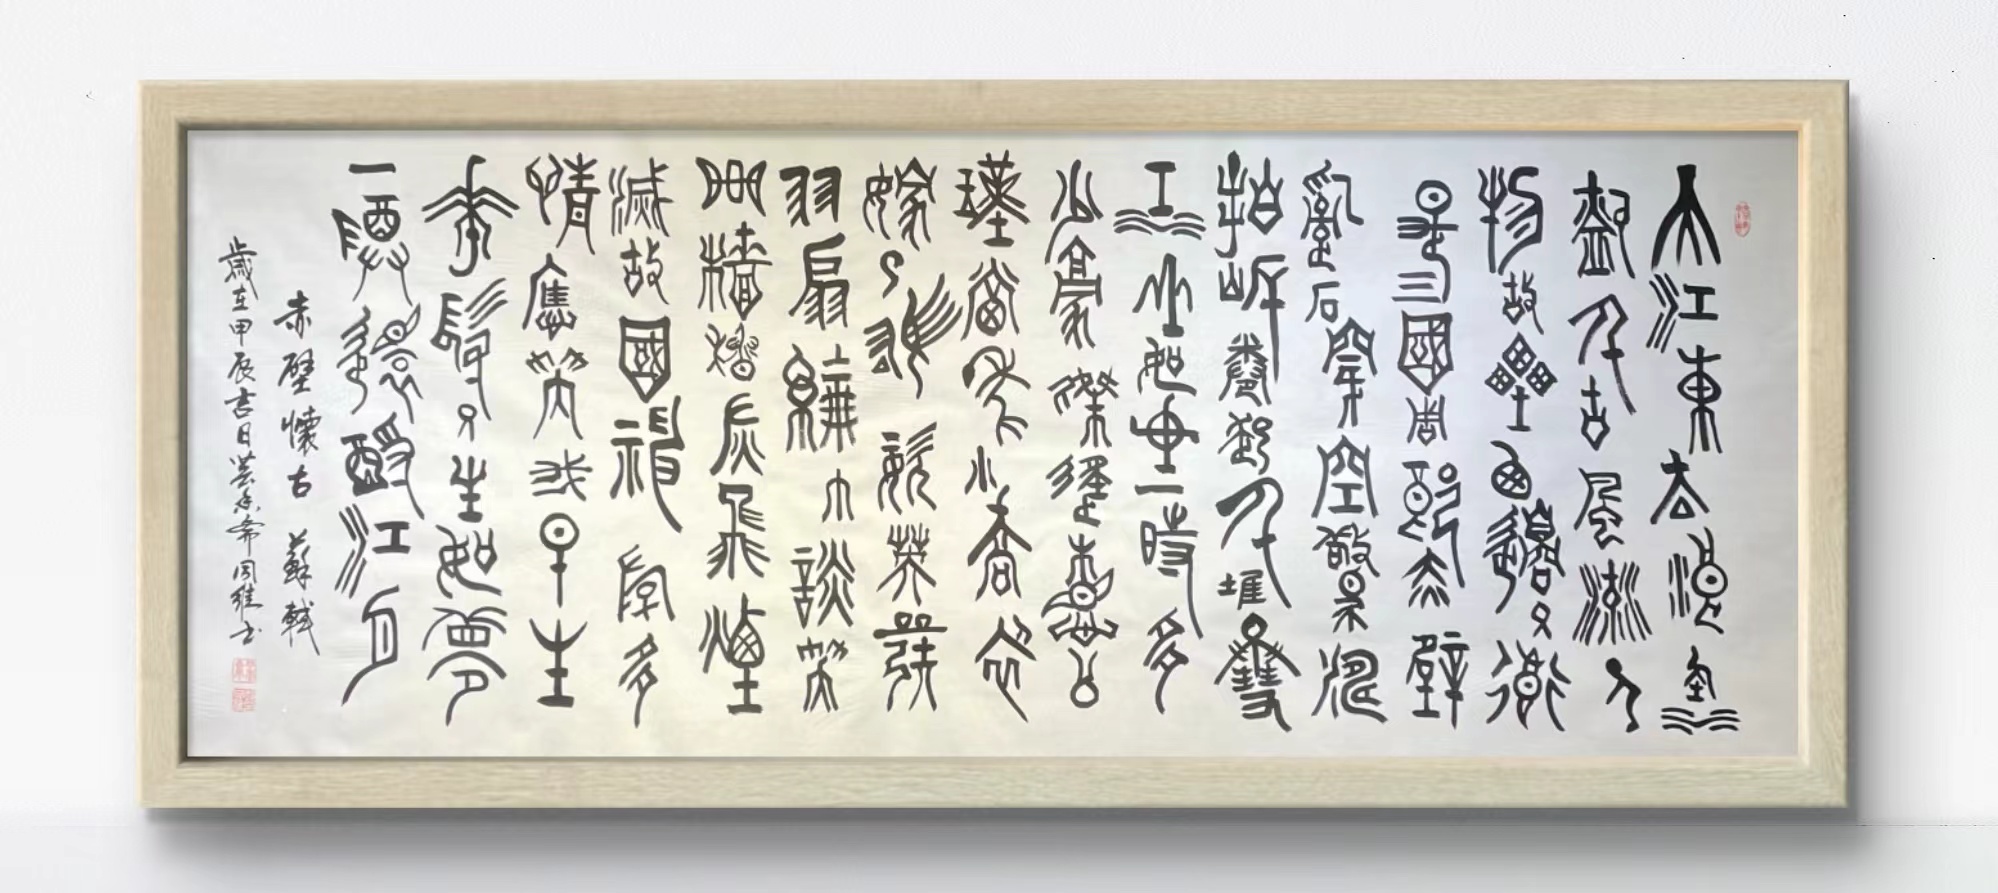 大江東去浪淘
盡千古風流人
物故壘西邊人道
是三國周郎赤壁
亂石穿空驚濤
拍岸捲起千堆雪
江山如畫一時多
少豪傑遙想公
瑾當年小喬初
嫁了雄姿英發
羽扇綸巾談笑
間檣櫓灰飛煙
滅故國神遊多
情應笑我早生
華髮人生如夢
一尊還酹江月
赤壁懷古 蘇軾
歲在甲辰吉日周維書